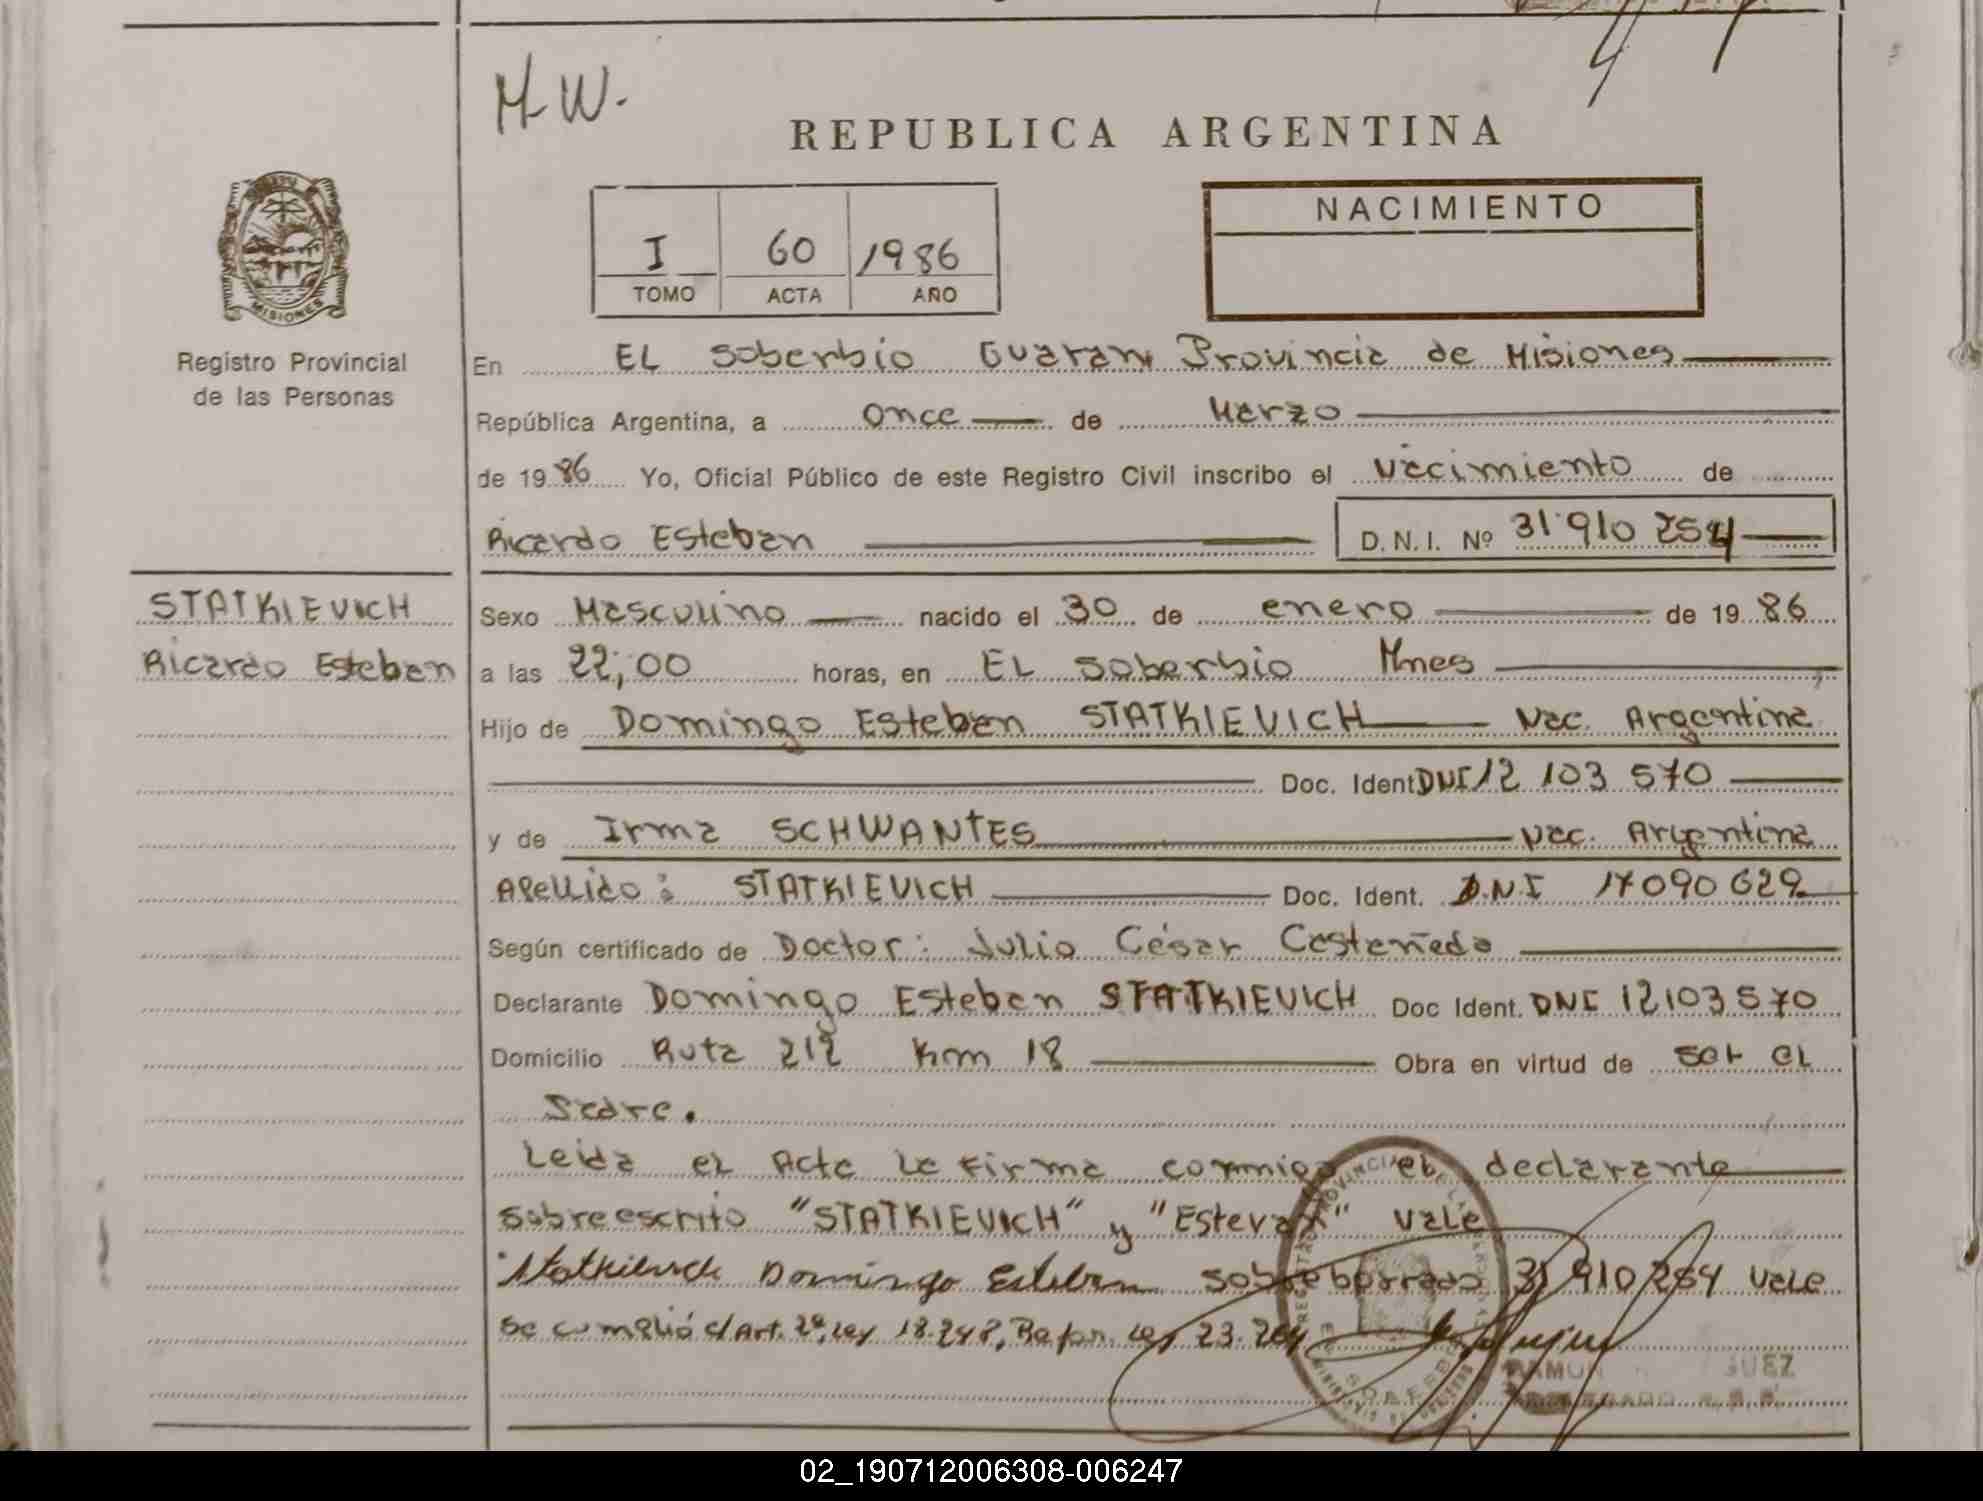 H.W.
REPUBLICA ARGENTINA
I 60 1986
TOMO ACTA AÑO
NACIMIENTO
MISIONES
Registro Provincial
de las Personas
En EL Soberbio Guarani Provincia de Misiones
República Argentina, a once de Marzo
de 1986 Yo, Oficial Público de este Registro Civil inscribo el Nacimiento de
Ricardo Esteban D.N.I. Nº 31 910 254
STATKIEVICH
Ricardo Esteban
Sexo Masculino nacido el 30 de enero de 1986
a las 22;00 horas, en EL Soberbio Mnes
Hijo de Domingo Esteban STATKIEVICH Nac. Argentina
Doc. Ident DNI 12 103 570
y de Irma SCHWANTES Nac. Argentina
Apellido: STATKIEVICH Doc. Ident. D.N.I 17 090 629
Según certificado de Doctor: Julio César Castañeda
Declarante Domingo Esteban STATKIEVICH Doc Ident. DNI 12103570
Domicilio Ruta 212 Km 18 Obra en virtud de ser el
Padre.
Leida el Acta la firma conmigo el declarante
Sobreescrito "STATKIEVICH" y "Estevan" Vale
Statkievich Domingo Esteban Sobreborrado 31 910 254 Vale
Se cumplió c/Art. 2º, Ley 18.248, Refor. Ley 23.264
02_190712006308-006247